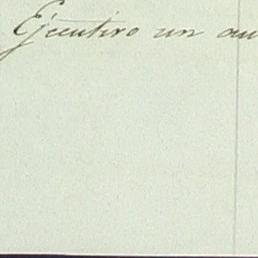 Ejecutivo un au